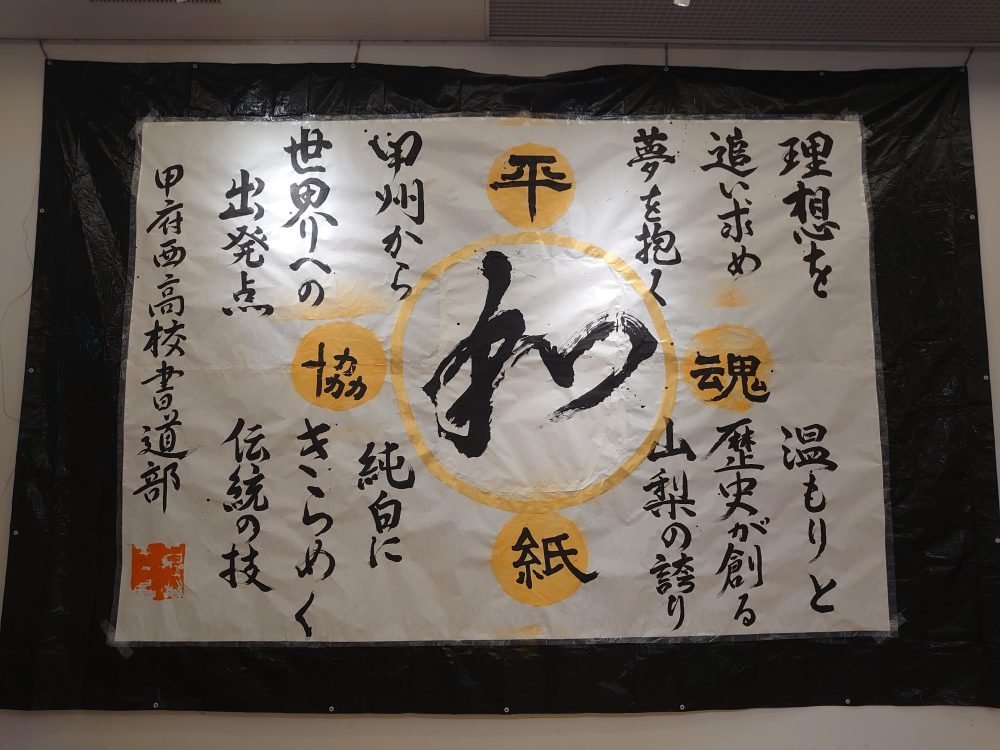 理想を
追い求め
夢を抱く
甲州から
世界への
出発点
平
魂
和
協
紙
温もりと
歴史が創る
山梨の誇り
純白に
きらめく
伝統の技
甲府西高校書道部